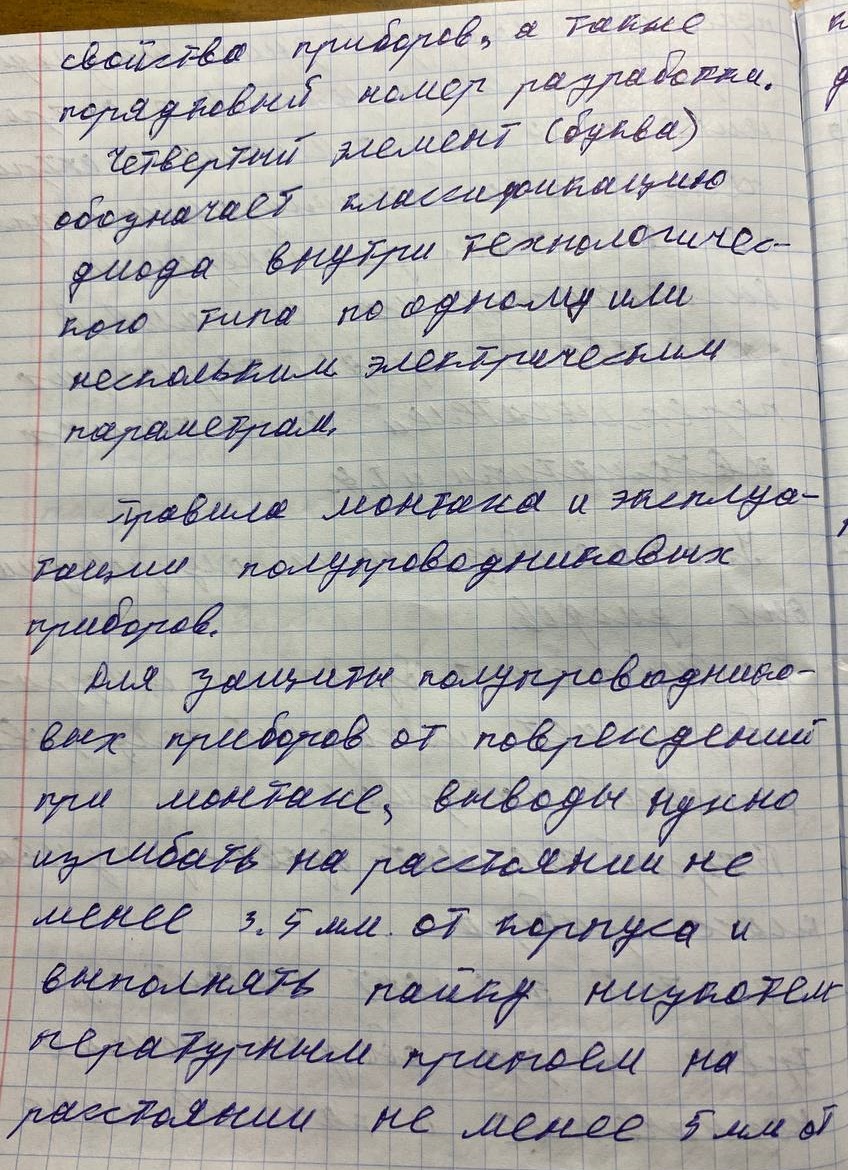 свойства приборов, а также
порядковый номер разработки.
Четвертый элемент (буква)
обозначает классификацию
диода внутри технологичес-
кого типа по одному или
нескольким электрическим
параметрам.
Правила монтажа и эксплуа-
тации полупроводниковых
приборов.
Для защиты полупроводнико-
вых приборов от повреждений
при монтаже, выводы нужно
изгибать на расстоянии не
менее 3.5 мм. от корпуса и
выполнять пайку низкотем
пературным припоем на
расстоянии не менее 5 мм от